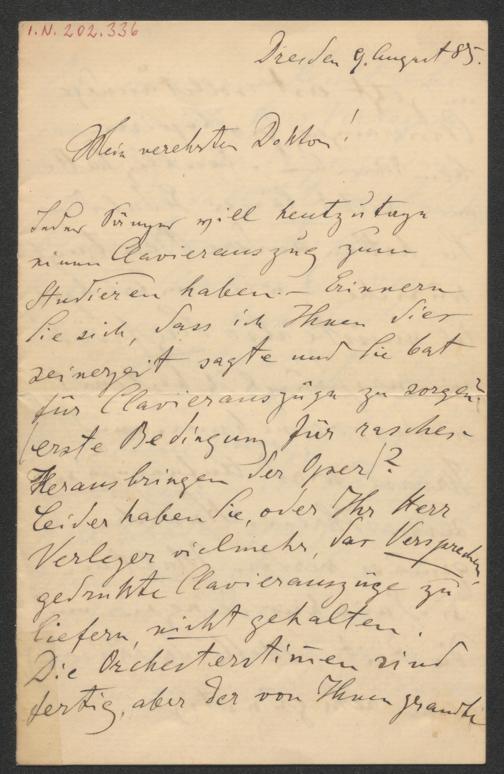 I.N. 202.336
Dresden 9. August 85.
Mein verehrter Doktor!
Jeder Sänger will heutzutage
einen Clavierauszug zum
Studieren haben. – Erinnern
Sie sich, dass ich Ihnen dies
seinerzeit sagte und Sie bat
für Clavierauszüge zu sorgen?
(erste Bedingung für rasches
Herausbringen der Oper)?
Leider haben Sie, oder Ihr Herr
Verleger vielmehr, das Versprechen,
gedrukte Clavierauszüge zu
liefern, nicht gehalten.
Die Orchesterstim̄en sind
fertig, aber der von Ihnen gesandte